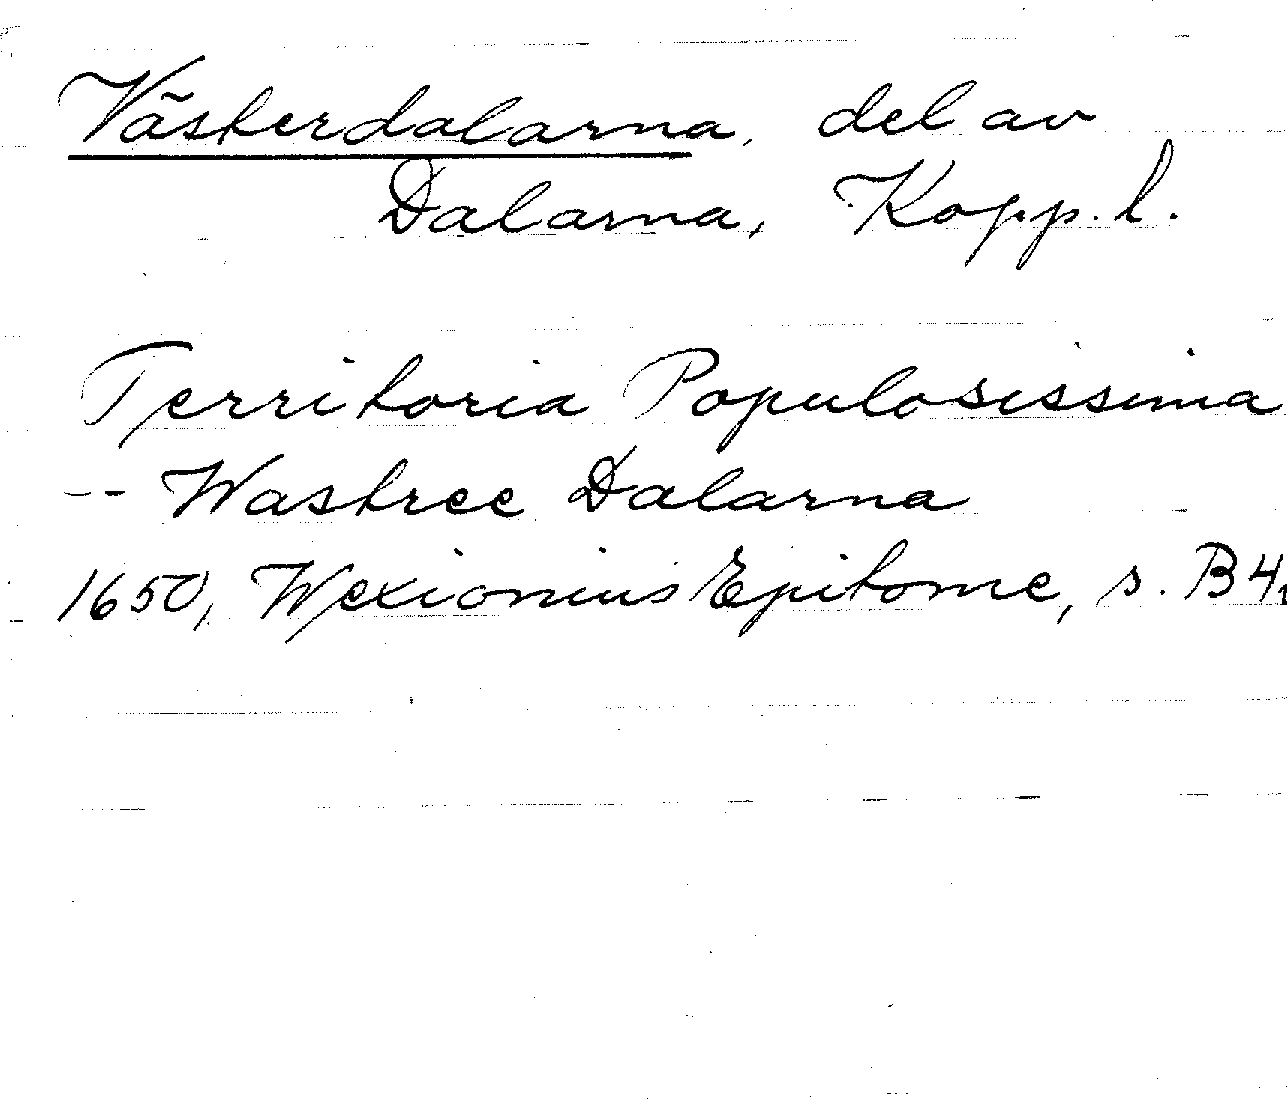 Västerdalarna, del av
Dalarna, Kopp. l.
Territoria Populosissima
-- Wastree Dalarna
1650, Wexionius Epitome, s. B4